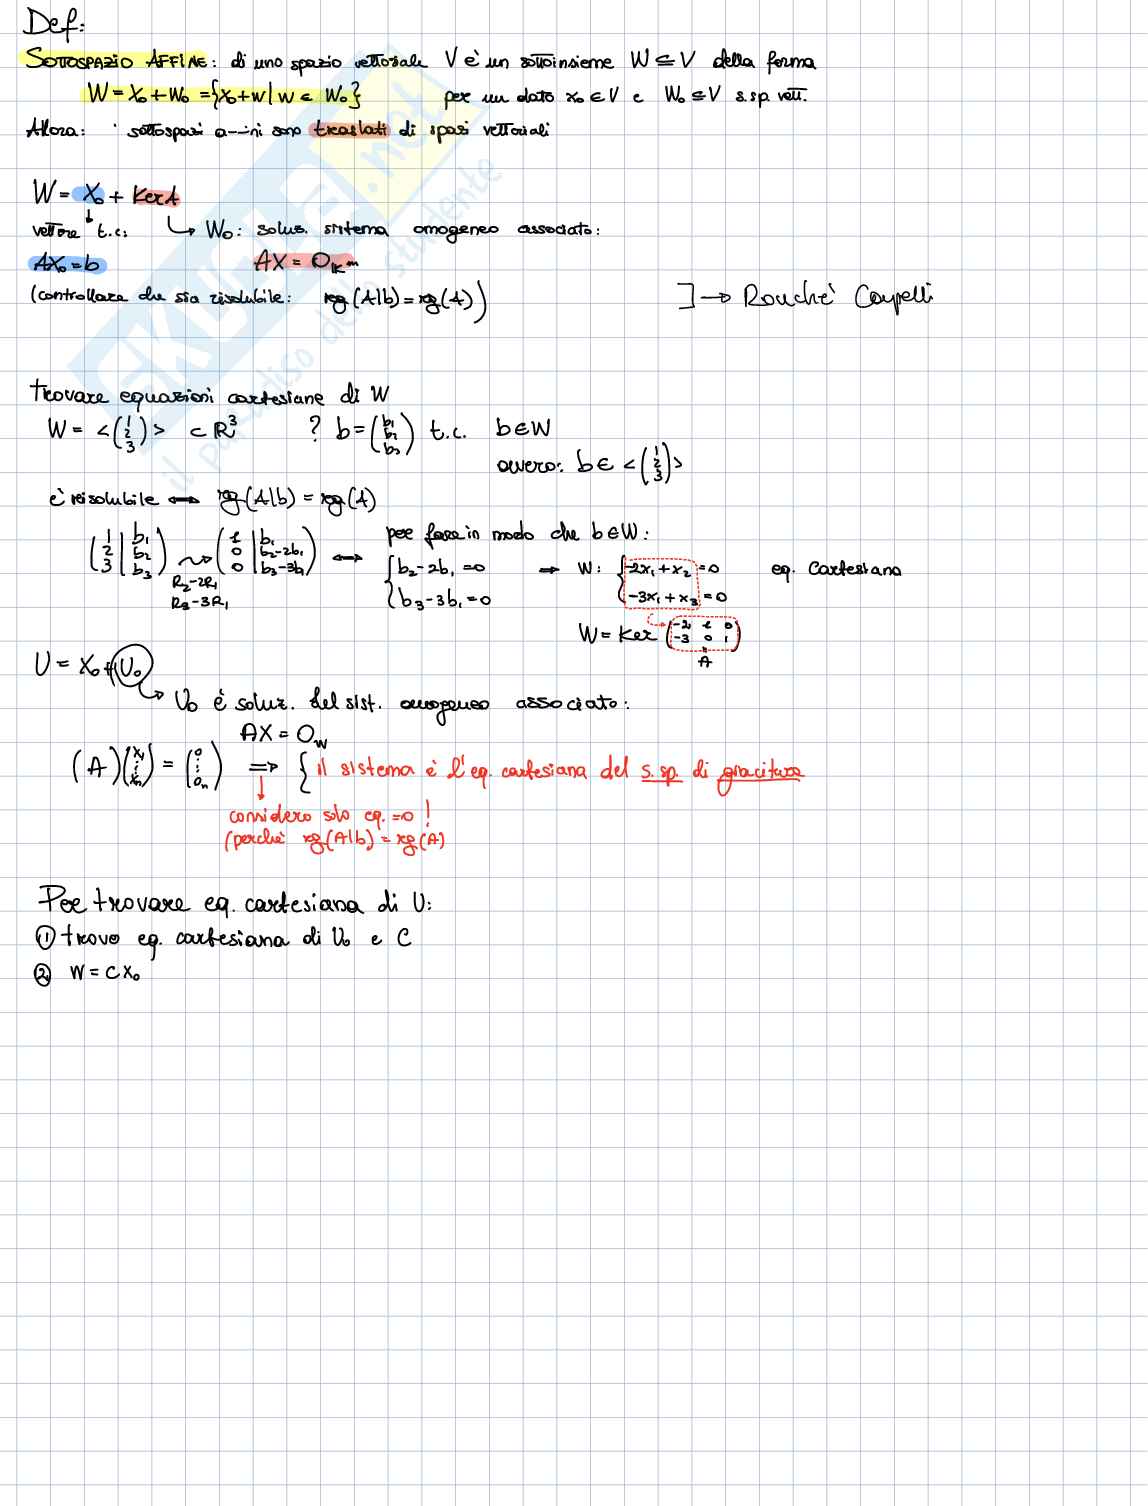 Def:
SOTTOSPAZIO AFFINE: di uno spazio vettoriale V è un sottoinsieme W ⊆ V della forma
W = X₀ + W₀ = {x₀ + w | w ∈ W₀} per un dato x₀ ∈ V e W₀ ⊆ V s.sp. vett.
Allora: i sottospazi affini sono traslati di spazi vettoriali
W = X₀ + KerA
vettore t.c. ↳ W₀: soluz. sistema omogeneo associato:
AX₀ = b AX = O_K^m
(controllare che sia risolubile: rg(A|b) = rg(A)) ] → Rouchè Capelli
trovare equazioni cartesiane di W
W = <(1 2 3)> ⊂ R³ ? b = (b₁ b₂ b₃) t.c. b ∈ W
ovvero: b ∈ <(1 2 3)>
è risolubile ⟺ rg(A|b) = rg(A)
per fare in modo che b ∈ W:
(1 2 3 | b₁ b₂ b₃) ⇝ (1 0 0 | b₁ b₂-2b₁ b₃-3b₁) ⟺ { b₂-2b₁ = 0 ⇒ W: { -2x₁ + x₂ = 0 eq. Cartesiana
R₂-2R₁ b₃-3b₁ = 0 -3x₁ + x₃ = 0
R₃-3R₁
W = Ker (-2 1 0 -3 0 1)
A
U = X₀ + U₀
↳ U₀ è soluz. del sist. omogeneo associato:
AX = O_W
(A)(x₁ ⋮ xₙ) = (0 ⋮ 0ₙ) ⇒ { il sistema è l'eq. cartesiana del s.sp. di giacitura
considero solo eq. = 0 !
(perchè rg(A|b) = rg(A)
Per trovare eq. cartesiana di U:
① trovo eq. cartesiana di U₀ e C
② W = CX₀
SKUOLA.net
il paradiso dello studente